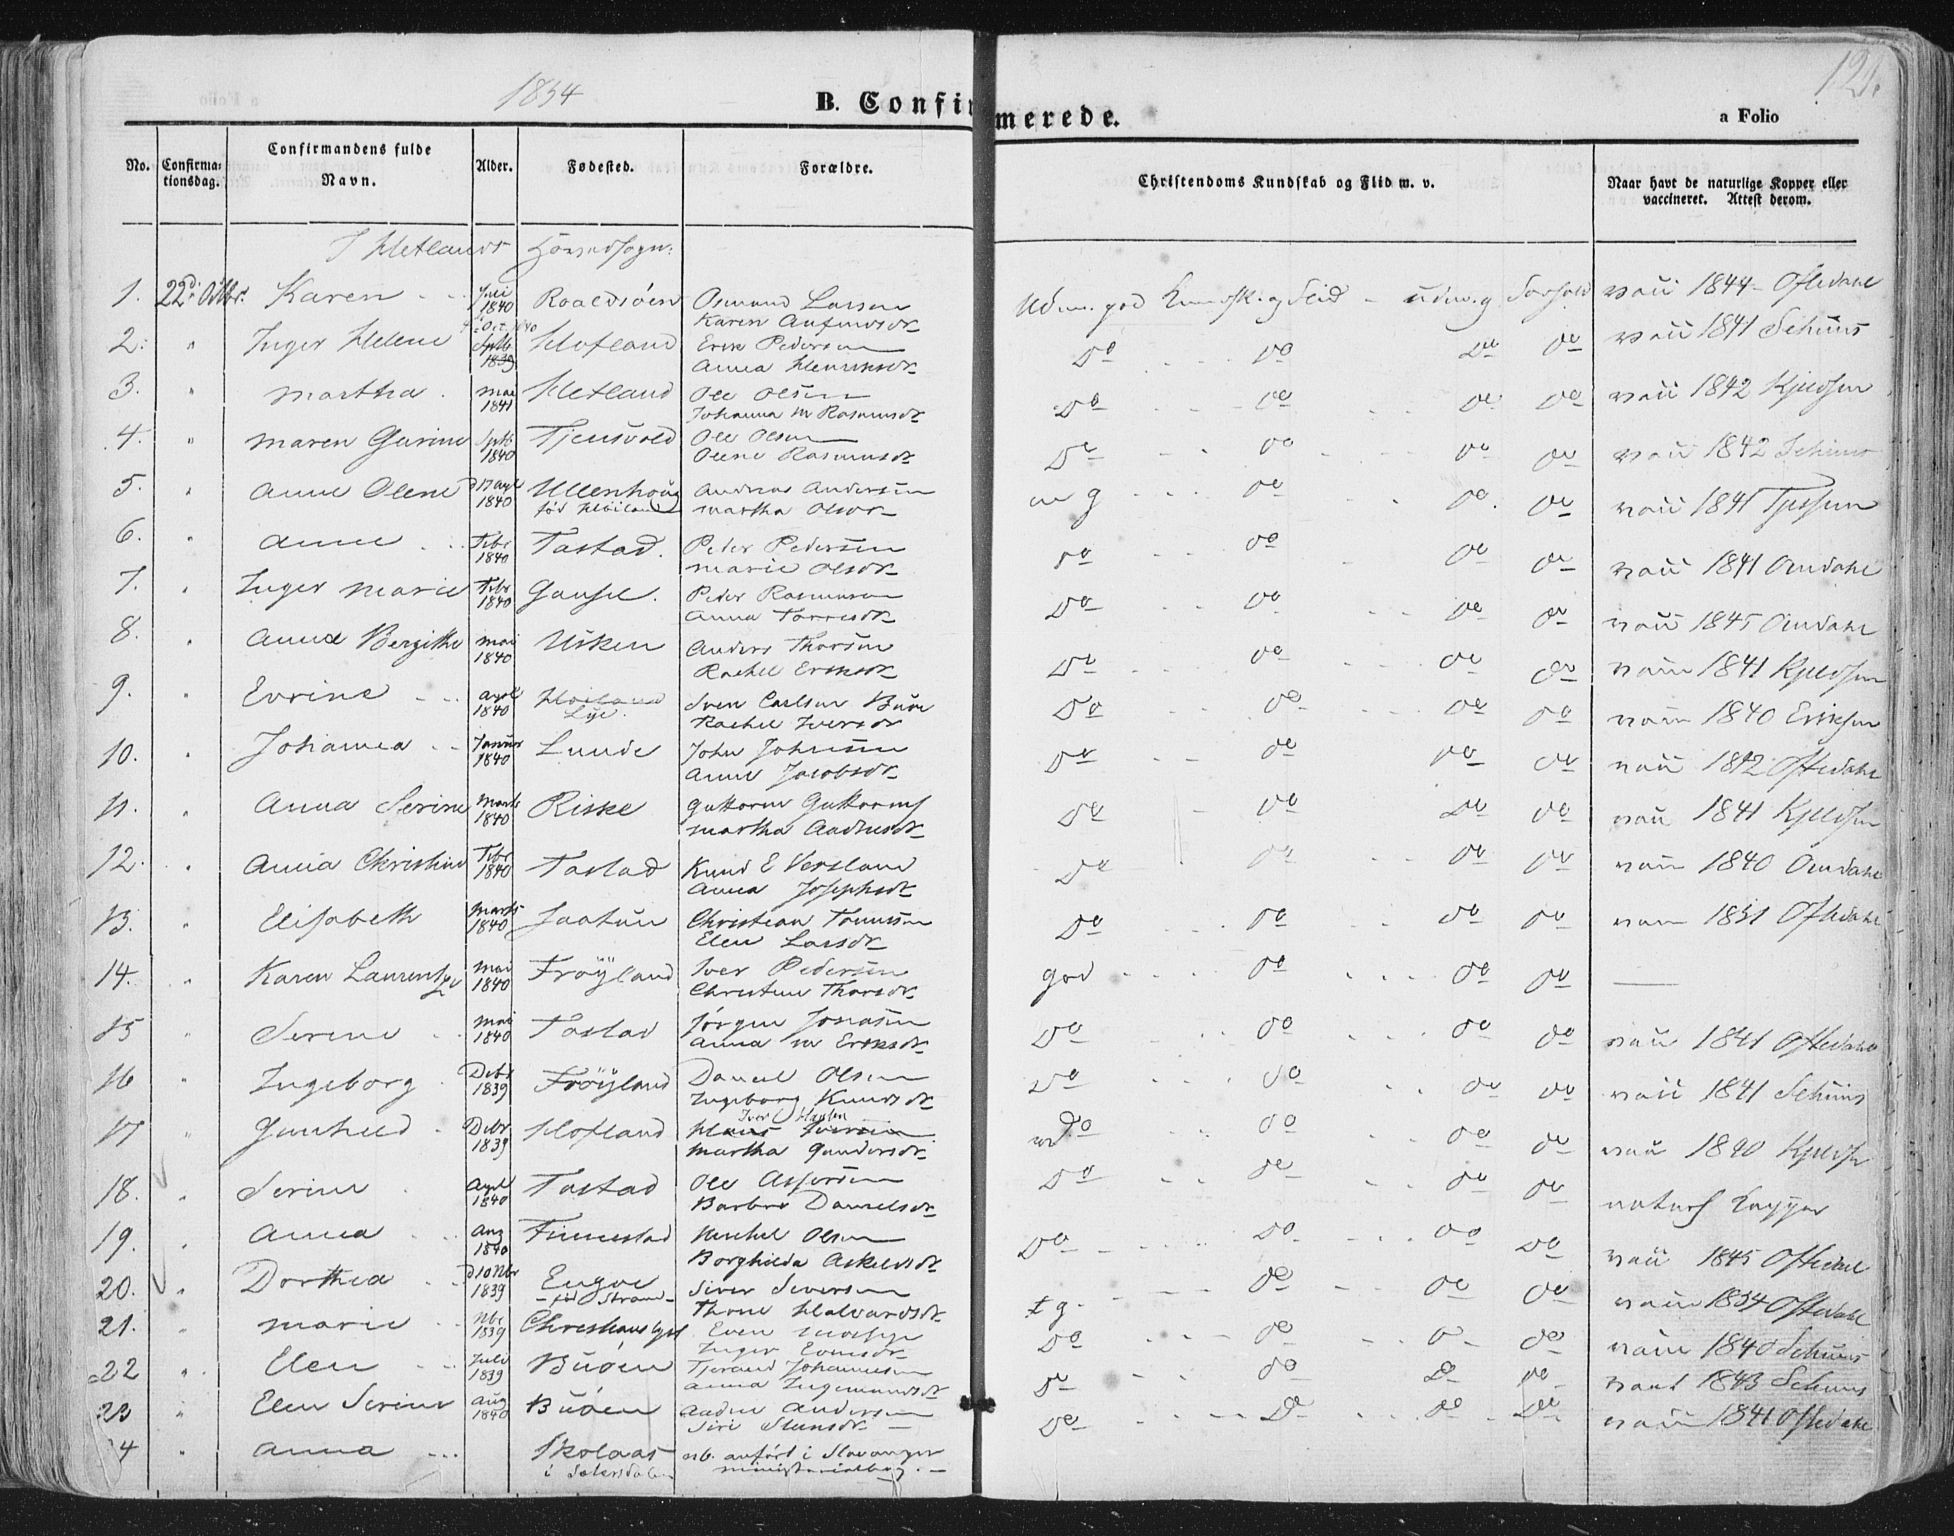 1854
B. Confirmerede.
a Folio
121.
No.
Confirma-
tionsdag.
Confirmandens fulde
Navn.
Alder.
Fødested.
Forældre.
Christendoms Kundskab og Flid m. v.
Naar havt de naturlige Kopper eller
vaccineret. Attest derom.
I Hetlands
1. 22d Octbr. Karen Juli 1840 Roaldsöen Osmund Larsen
Karen
Udm. god Kundsk. og Flid - udm. g. Forhold vacc 1844 Oftedahl
2. " Inger Helene Octbr 1840 Septb 1839 Hofland Erik Pedersen
Anna Henriksdr
Do Do Do Do vacc 1841 Schiøs
3. " Martha Mai 1841 Hetland Ole Olsen
Johanna M Rasmusdr
Do Do Do Do vacc 1842 Kjeldsen
4. " Maren Gurine Sptb 1840 Tjensvold Ole Olsen
Olene Rasmusdr
Do Do Do Do vacc 1842
5. " Anne Olene 1840 Ullenhoug Andreas Andersen
født Høiland Martha Olsdr
m g Do Do Do vacc 1841
6. " Anne Febr 1840 Tastad. Peder Pedersen
Marie Olsdr
Do Do Do Do vacc 1841 Omdahl
7. " Inger Marie Febr 1840 Gausel. Peder Rasmussen
Anna Torresdr
Do Do Do Do vacc 1845 Omdahl
8. " Anna Bergithe Mai 1840 Usken Anders Thorsen
Rachel Eriksdr
Do Do Do Do vacc 1841 Kjeldsen
9. " Evrine April 1840 Høiland Sven Carlsen
Lye. Rachel Iversdr
Do Do Do Do vacc 1840 Eriksen
10. " Johanna Januar 1840 Lunde John Johnsen
Anne Jacobsdr
Do Do Do Do vacc 1842 Oftedahl
11. " Anna Serine Marts 1840 Riske Guttorm Guttorms
Martha Andersdr
Do Do Do Do vacc 1841 Kjeldsen
12. " Anna Christine Febr 1840 Tastad Knud E Versland
Anna Josephsdr
Do Do Do Do vacc 1840 Omdahl
13. " Elisabeth Marts 1840 Jaatun Christian Tønnesen
Elen Larsdr
Do Do Do Do vacc 1851 Oftedahl
14. " Karen Laurentze Mai 1840 Frøyland Iver Pedersen
Christine Thorsdr
god Do Do Do
15 " Serine Mai 1840 Tastad Jörgen Jonasen
Anna M Eriksdr
Do Do Do Do vacc 1841 Oftedahl
16 " Ingeborg Debr 1839 Frøyland Daniel Olsen
Ingeborg Knudsdr
Do Do Do Do vacc 1841 Schiøs
17 " Gunhild Debr 1839 Hofland Iver Hansen
Hans Iversen
Martha Gundersdr
Do Do Do Do vacc 1840 Kjelds
18. " Serine April 1840 Tastad Ole Assersen
Barbro Danielsdr
Do Do Do Do naturl Kopper
19. " Anna Aug 1840 Finnestad Michel Olsen
Borghilda Askeldsdr
Do Do Do Do vacc 1845 Oftedahl
20. " Dorthea d10 Nbr 1839 Engøe Siver Siversen
- fød Strand - Thrine Halvardsdr
t g. Do Do Do vacc 1854 Oftedahl
21. " Marie Nbr 1839 Even
Inger Evensdr
Do Do Do Do vacc 1840 Schiøs
22 " Elen Juli 1839 Buöen Tjerand Johannesen
Anna Ingemundsdr
Do Do Do Do vacc 1843 Schiøs
23 " Elen Serine Aug 1840 Buöen Andrew Andersen
Siri
Do Do Do Do vacc 1841 Oftedahl
24 " Anna Skolaas nb. anfört i Stavanger
i Sætersdalen ministerialbog. -